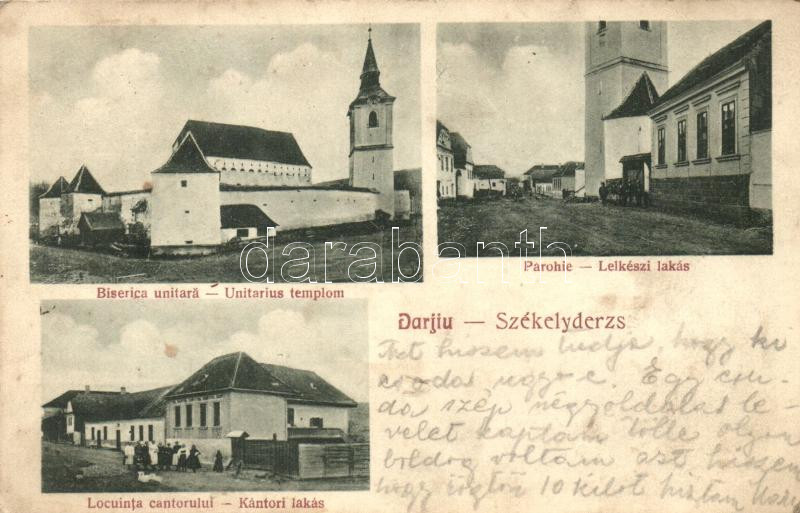 Biserica unitară — Unitarius templom
Parohie — Lelkészi lakás
darabanth.com
Darjiu — Székelyderzs
Locuința cantorului — Kántori lakás
hiszem tudja, hogy ki
csoda ugye. Egy csu-
da szép négyoldalas le-
velet kaptam tőle olyan
boldog voltam azt hiszem
hogy rögtön 10 kilót híztam